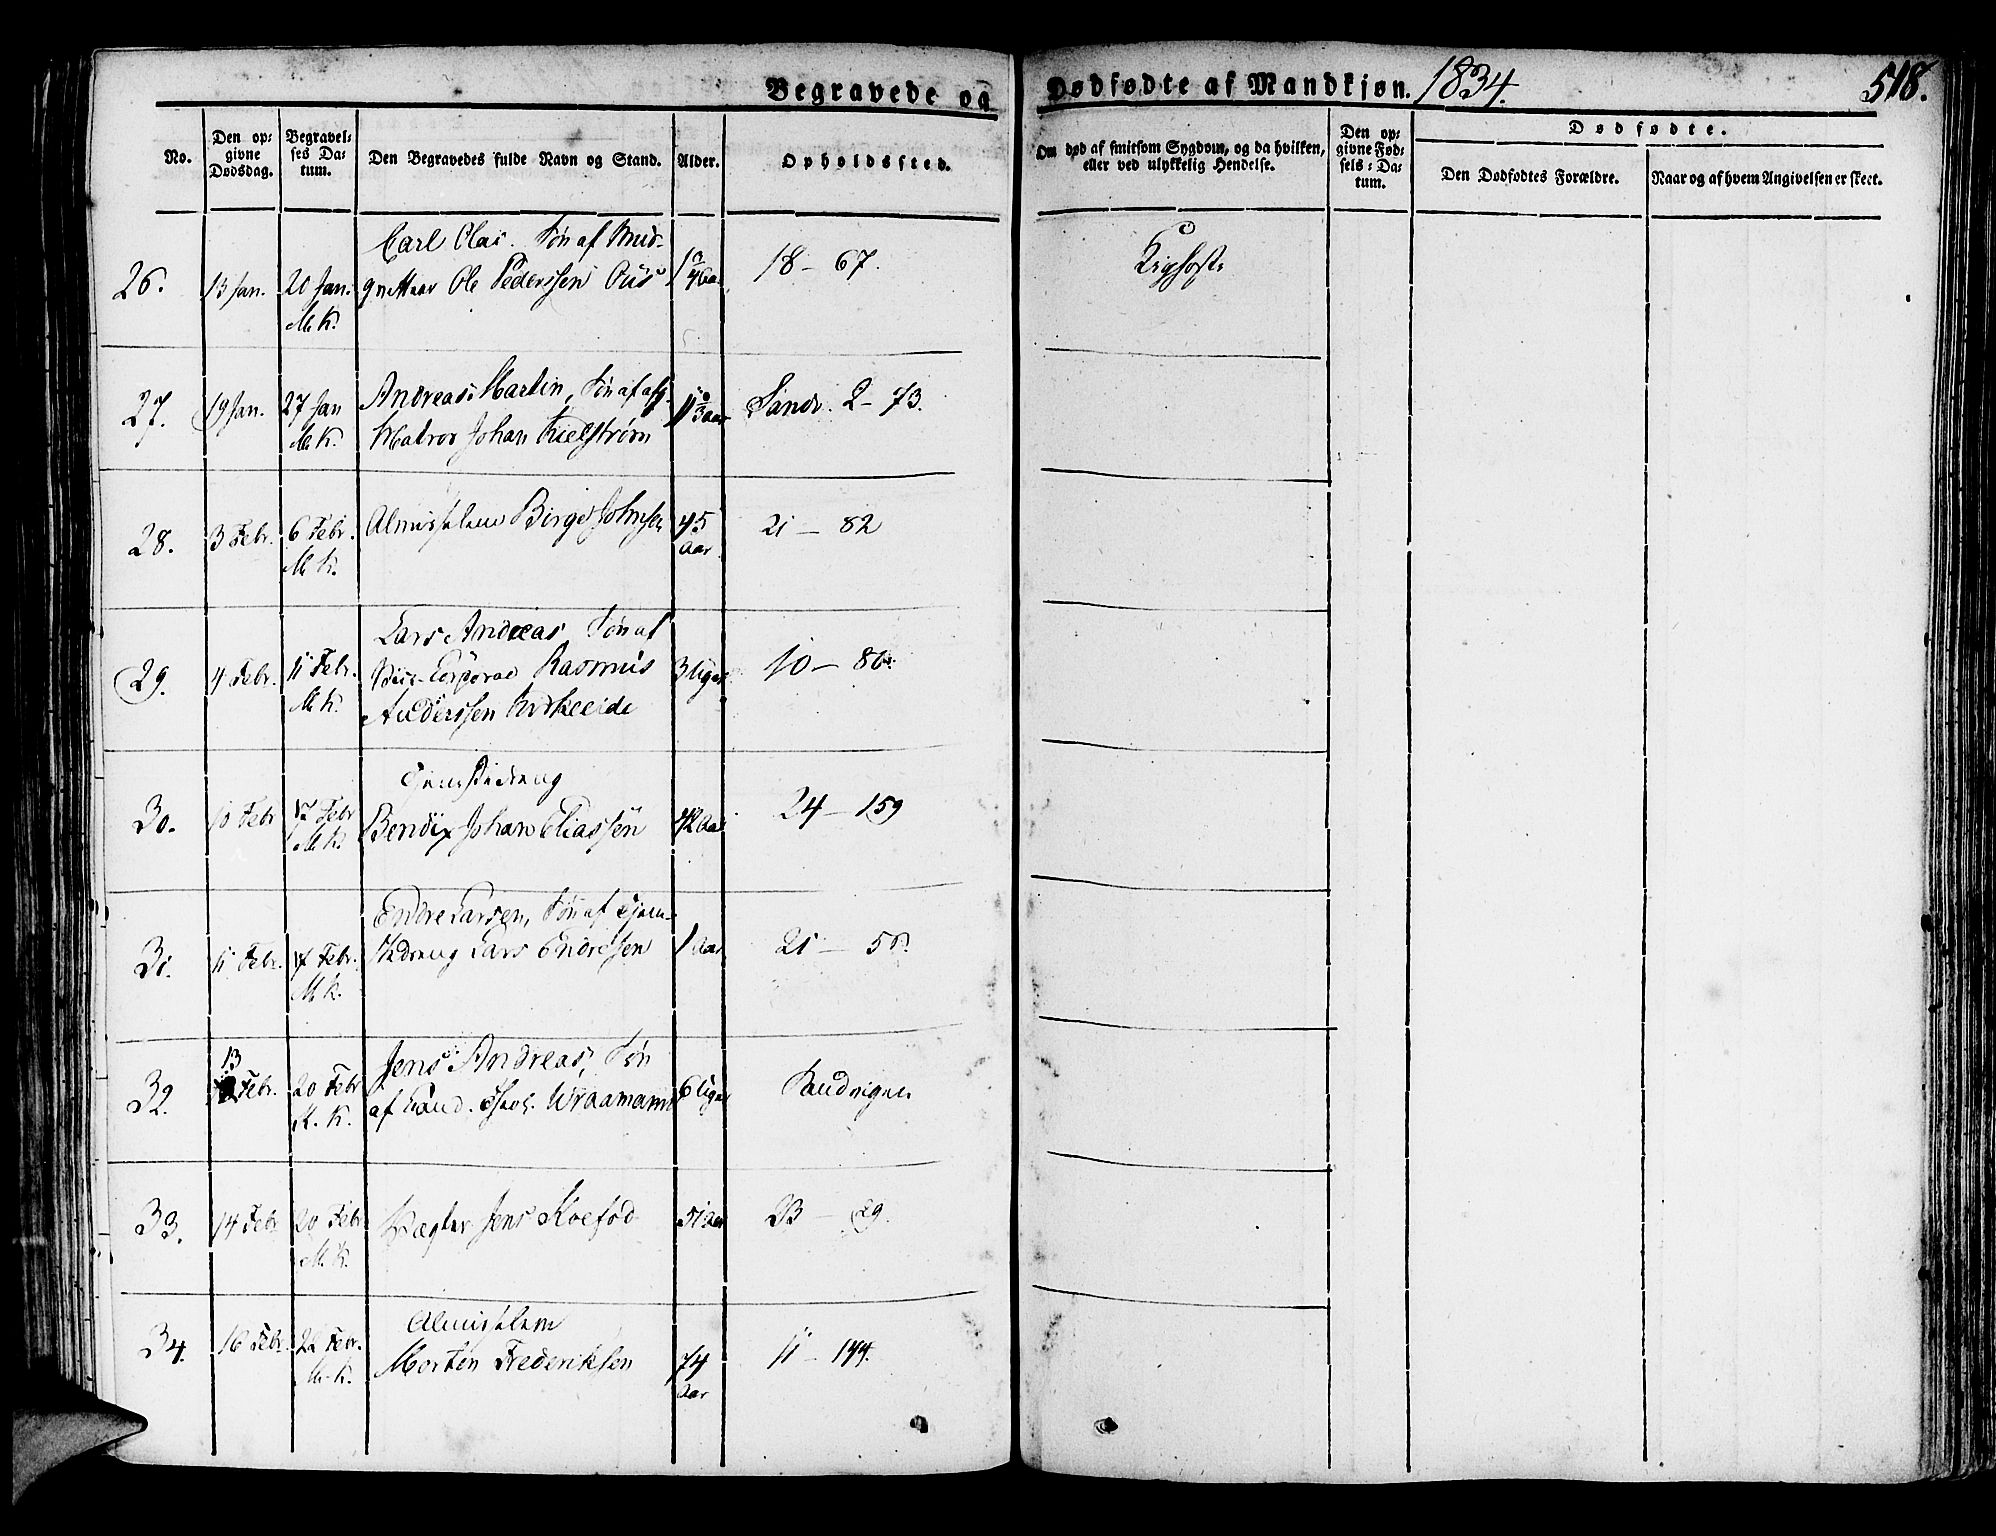 Begravede og Dødfødte af Mandkjøn. 1834.
518.
No.
Den op-
givne
Dødsdag.
Begravel-
ses Da-
tum.
Den Begravedes fulde Navn og Stand.
Alder.
Opholdssted.
Om død af smitsom Sygdom, og da hvilken,
eller ved ulykkelig Hendelse.
Den op-
givne Fød-
sels-Da-
tum.
Dødfødte.
Den Dødfødtes Forældre.
Naar og af hvem Angivelsen er skeet.
26.
13 Jan.
20 Jan.
M. K.
Carl Olai. Søn af
Ole Pederssen
18 – 67.
Kighoste
27.
19 Jan.
27 Jan
M. K.
Andreas Martin, Søn af
Matros Johan Kielstrøm
Sandv. 2 – 73.
28.
3 Febr.
6 Febr.
M. K.
Almisselem Birge Johnsen
45
Aar
21 – 82
29.
4 Febr.
11 Febr.
M. K.
Lars Andreas, Søn af
Corporal Rasmus
Anderssen Birkeeide
3 Uger
10 –
30.
10 Febr
17 Febr
M. K.
Tjenstedreng
Bendix Johan Eliassen
24 – 159
31.
11 Febr.
17 Febr.
M. K.
Endre Larsen, Søn af Tjen-
stedreng Lars Endresen
1 Aar
21 –
32.
13
Febr.
20 Febr
M. K.
Jens Andreas, Søn
af Wraamann
6 Uger
Sandvigen
33.
14 Febr
20 Febr
M. K.
Vægter Jens Koefod
51 Aar
23 – 29.
34.
16 Febr.
22 Febr.
M. K.
Almisselem
Morten Frederiksen
74
Aar
11 – 144.